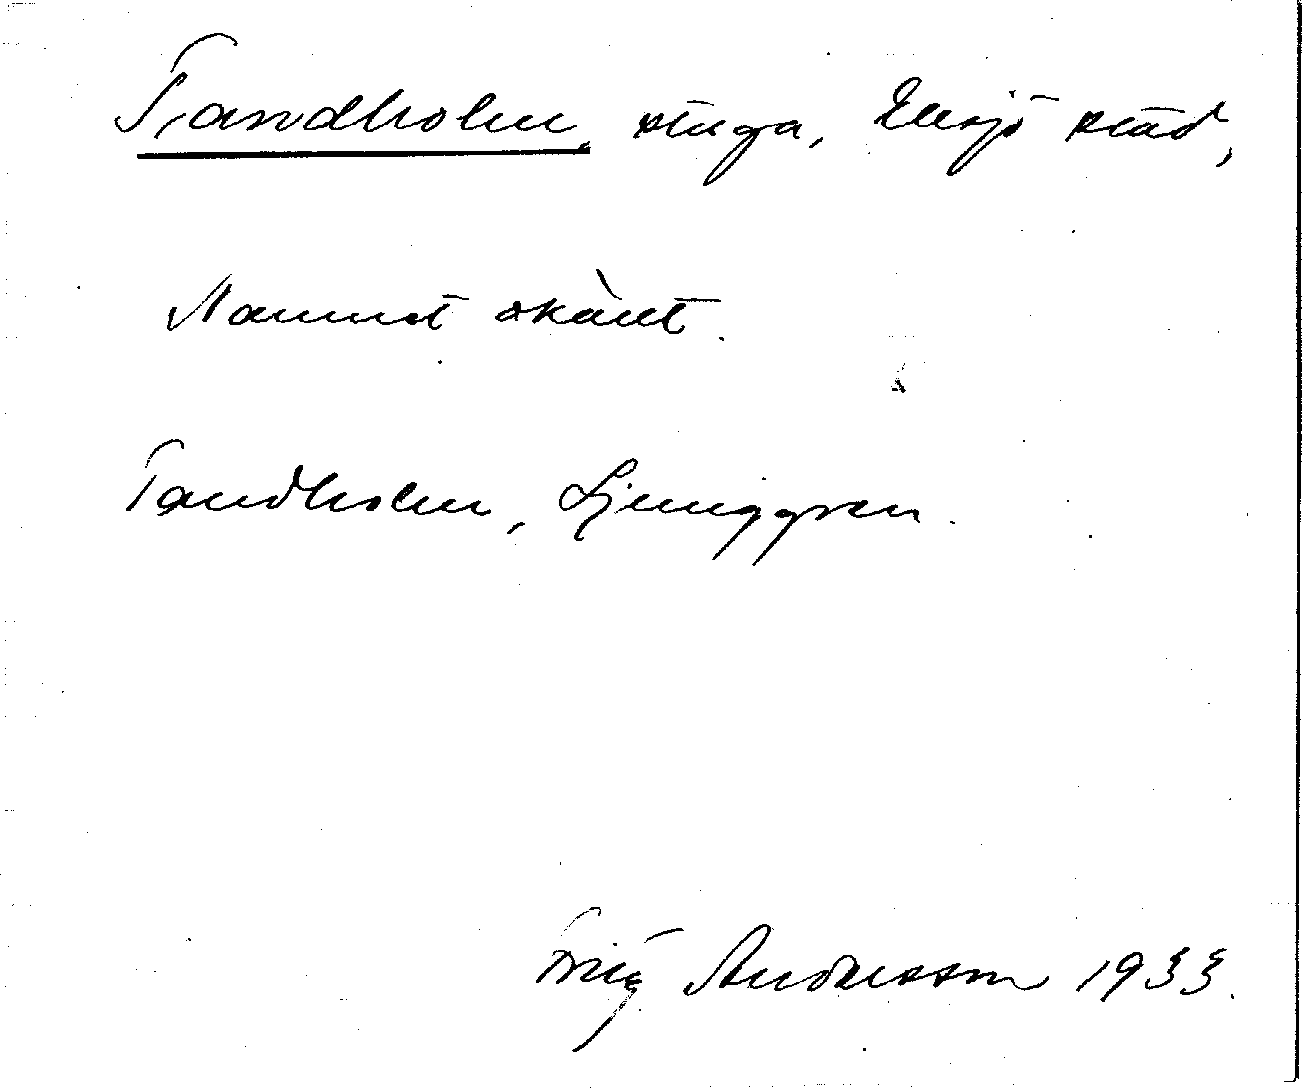 Tandholm, stuga, Eksjö stad,
Namnet okänt.
Tandholm, Ljunggren.
Fritz Andersson 1933.